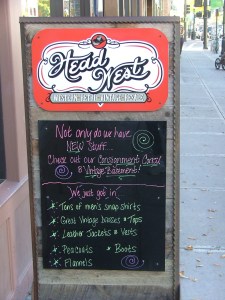 Head Nest
Not only do we have
NEW Stuff...
Check out our Consignment Corral
& Vintage Basement!
We just got in...
Tons of men's snap shirts
Great Vintage blouses & Tops
Leather Jackets & Vests
Peacoats & Boots
Flannels